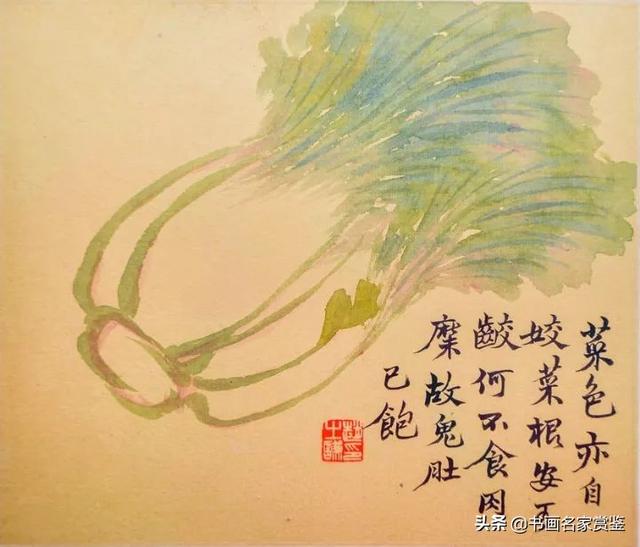 菜色亦自
姣菜根安可
齩何不食肉
糜故鬼肚
已飽
头条 @书画名家赏鉴